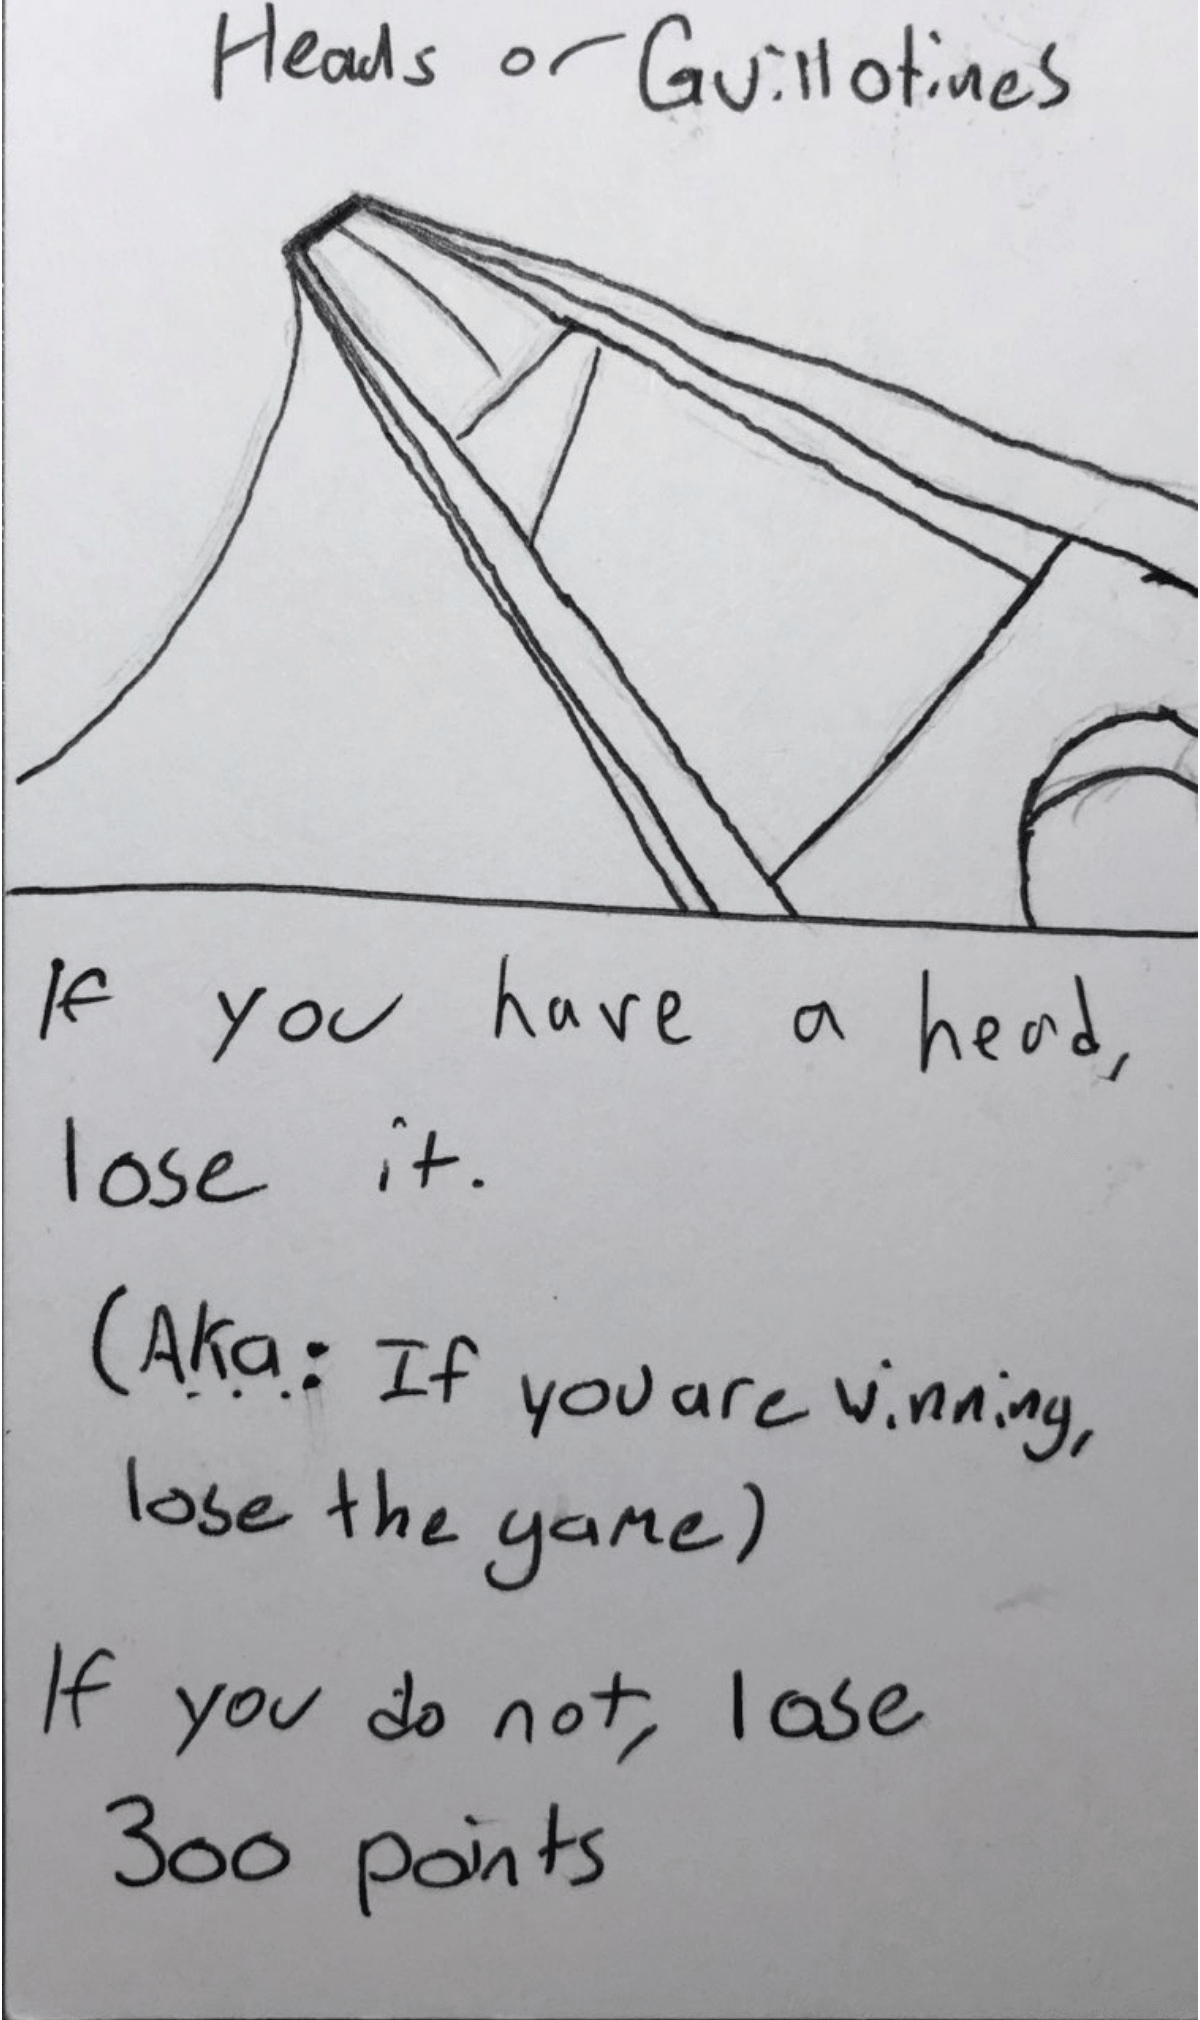 Heads or Guillotines
If you have a head,
lose it.
(Aka: If you are winning,
lose the game)
If you do not, lose
300 points